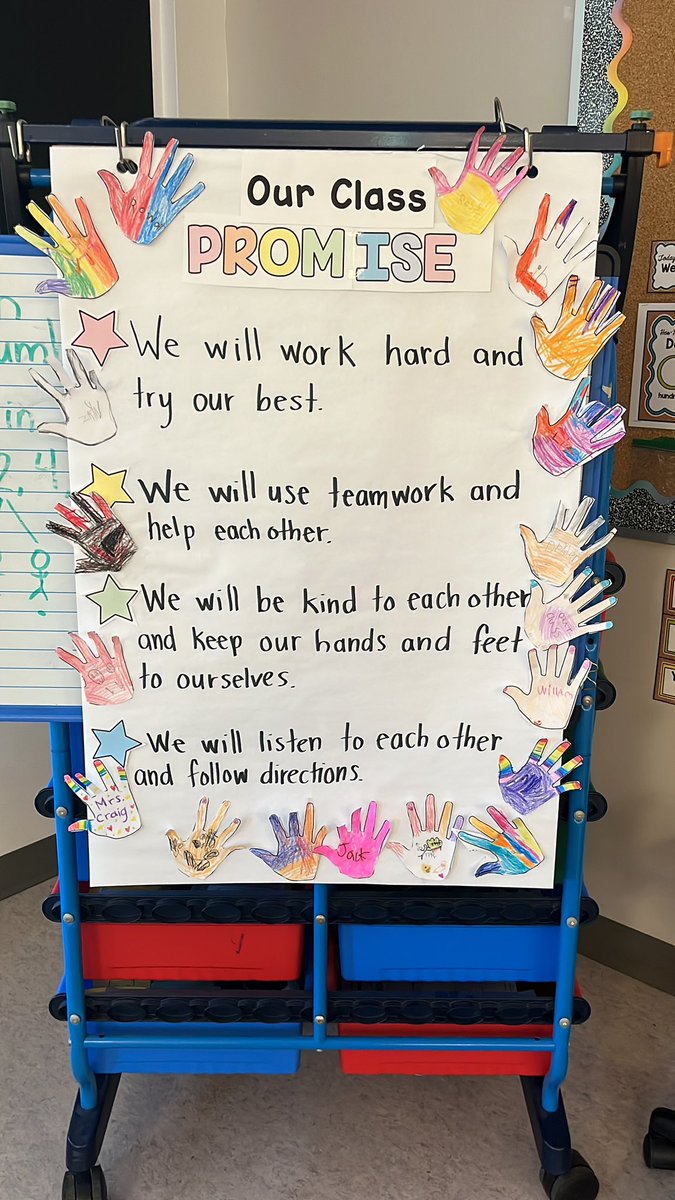 Our Class
PROMISE
We will work hard and
try our best.
We will use teamwork and
help each other.
We will be kind to each other
and keep our hands and feet
to ourselves.
We will listen to each other
and follow directions.
Mrs.
Craig
Jack
William
2, 4
in
Today
We
hundr